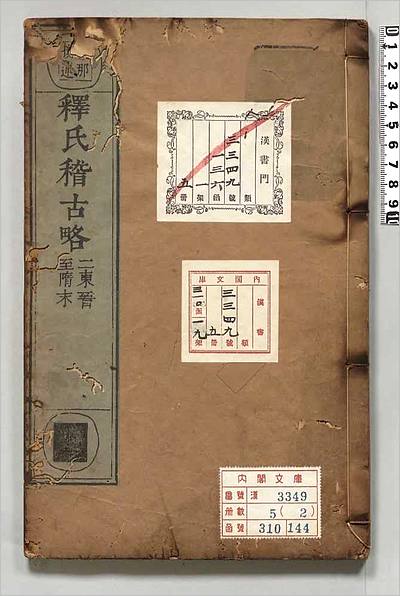 那
釋氏稽古略
二東晉
至隋末
漢書門
三三四九
一三六
一
五
類
號
函
架
冊
內閣文庫
漢書
三三四九
五
一九
類
號
冊
架
內閣文庫
番號 漢 3349
冊數 5 ( 2 )
函號 310 144
0 1 2 3 4 5 6 7 8 9